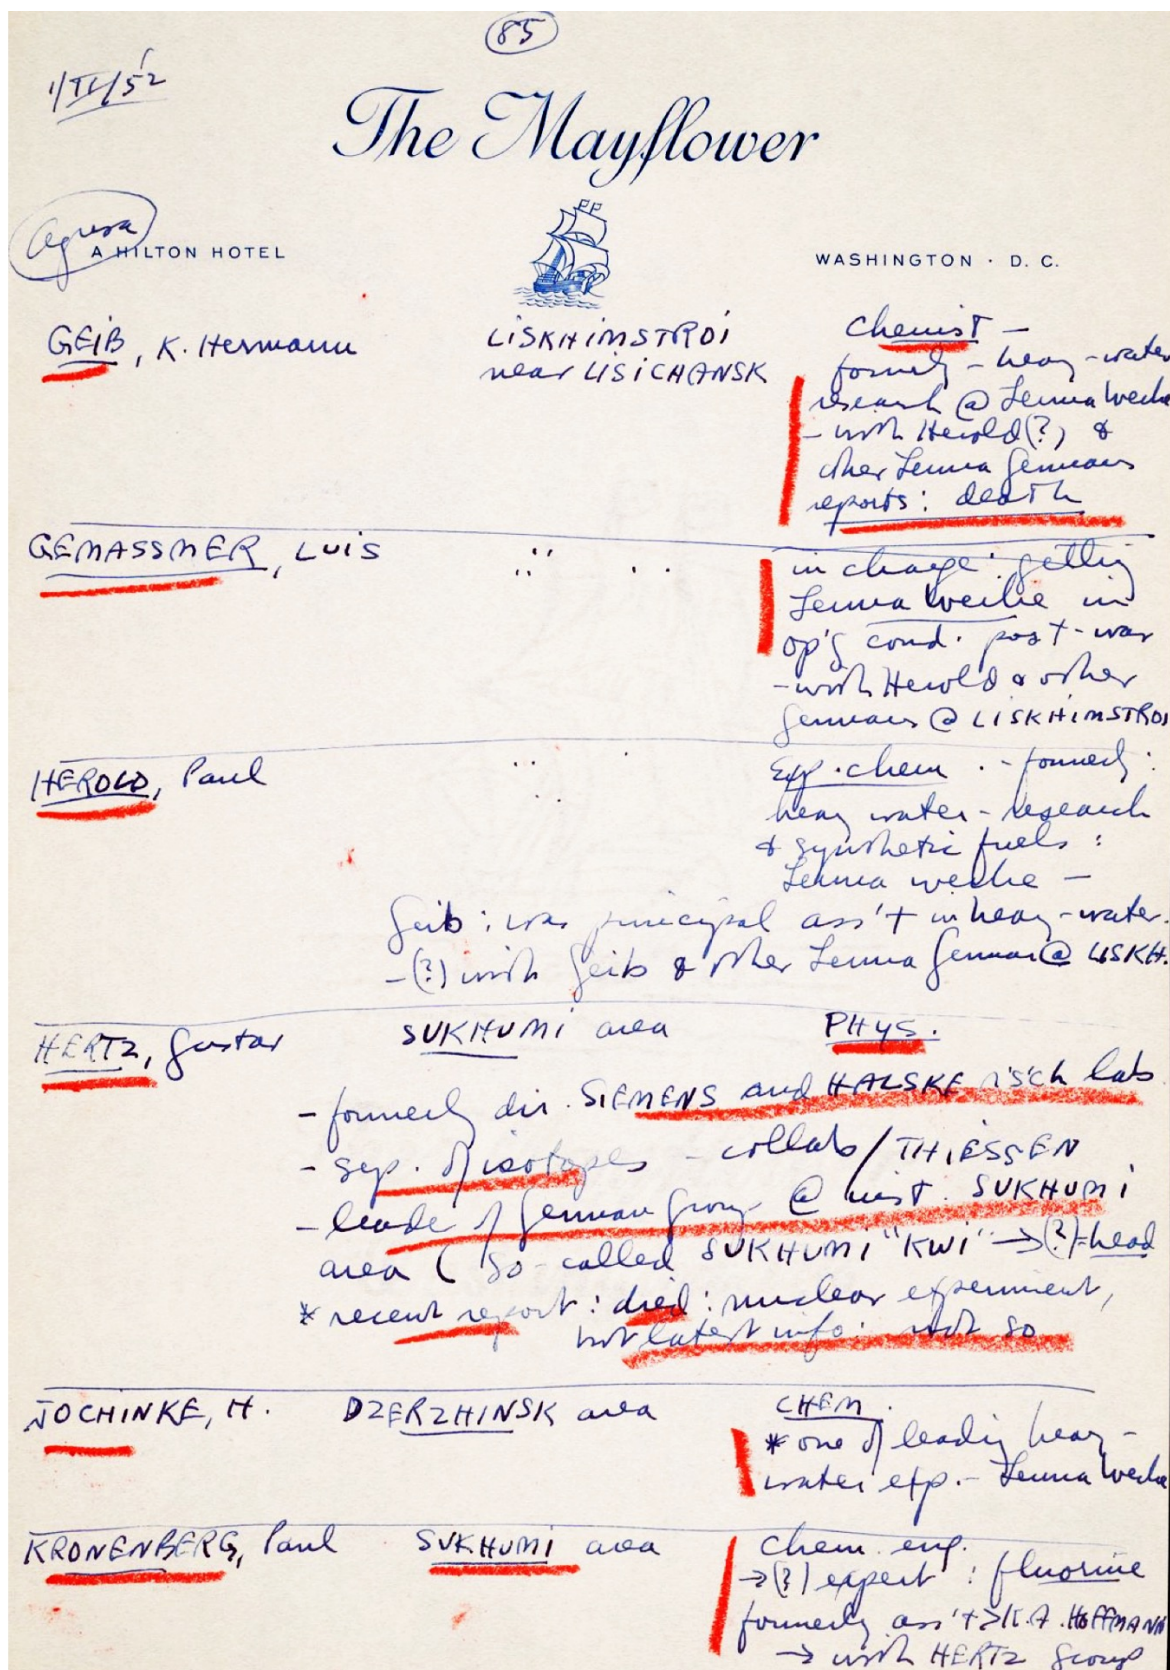 85
1/II/52
The Mayflower
A HILTON HOTEL
WASHINGTON · D. C.
GEIB, K. Hermann
LISKHIMSTROI
near LISICHANSK
Chemist -
formerly - heavy - water
research @ Leuna Werke
- with Herold (?) &
other Leuna Germans
reports: death
GEMASSMER, LUIS
" "
in charge: getting
Leuna Werke in
op'g cond. post-war
- with Herold & other
Germans @ LISKHIMSTROI
HEROLD, Paul
" "
Exp. chem. - formerly:
heavy water - research
& synthetic fuels:
Leuna werke -
Geib: was principal ass't in heavy-water.
- (?) with Geib & other Leuna German @ LISKH.
HERTZ, Gustav
SUKHUMI area
PHYS.
- formerly dir. SIEMENS and HALSKE rs'ch lab
- sep. of isotopes - collab / THIESSEN
- leader of German group @ inst. SUKHUMI
area (so-called SUKHUMI "KWI" → (?)-head
* recent report: died: nuclear experiment,
but latest info: not so
JOCHINKE, H.
DZERZHINSK area
CHEM.
* one of leading heavy -
water exp. - Leuna Werke
KRONENBERG, Paul
SUKHUMI area
Chem. eng.
→ (?) expert: fluorine
formerly ass't > K.A. HOFFMANN
→ with HERTZ group